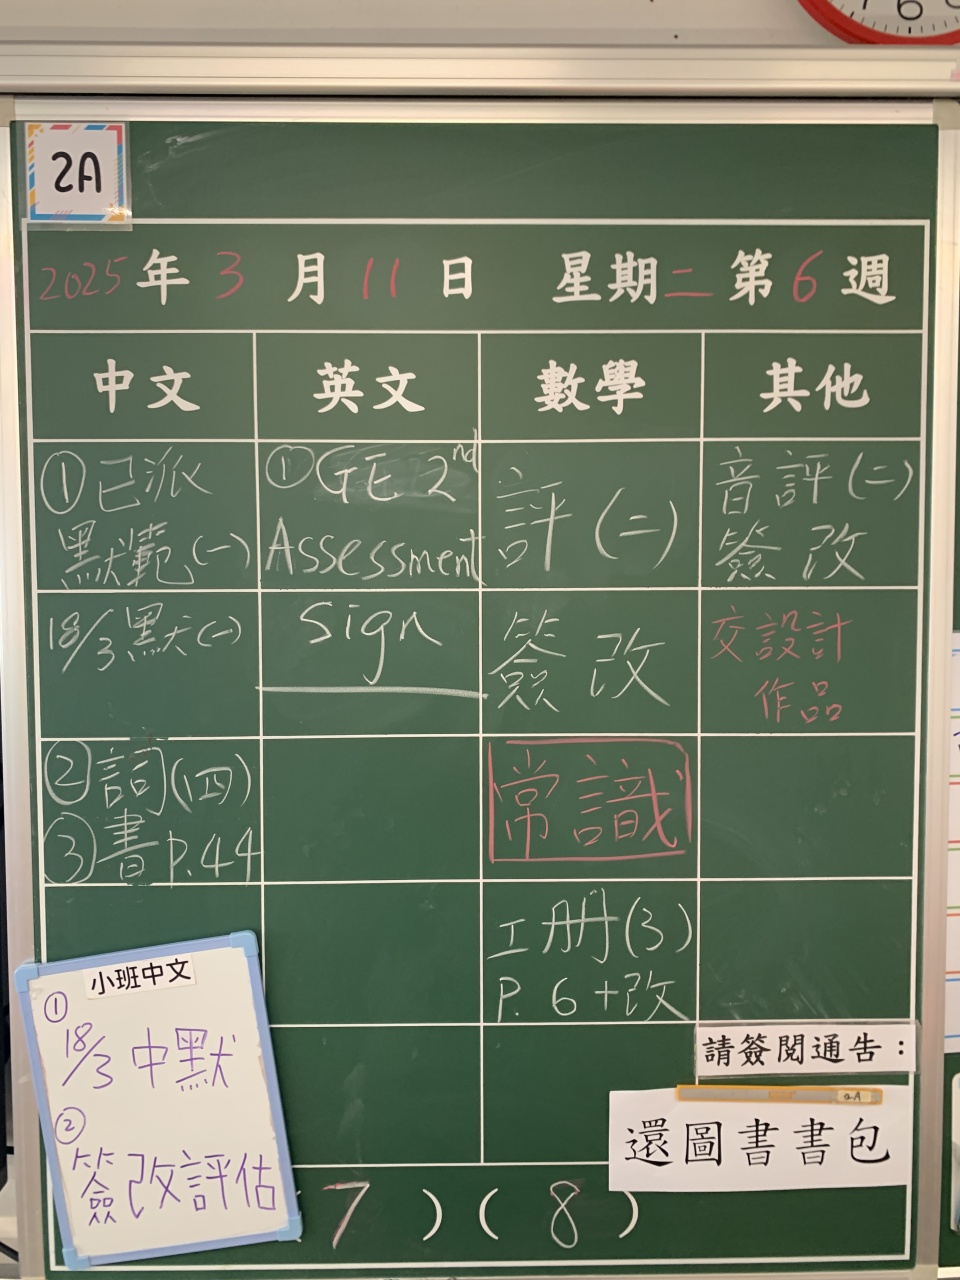 2A
2025年3月11日 星期二第6週
中文
英文
數學
其他
①已派
默範(一)
18/3默(一)
②詞(四)
③書P.44
①GE 2nd
Assessment
Sign
評(二)
簽改
常識
工冊(3)
P.6+改
音評(二)
簽改
交設計
作品
小班中文
①
18/3中默
②
簽改評估
請簽閱通告：
2A
還圖書書包
7)(8)
6